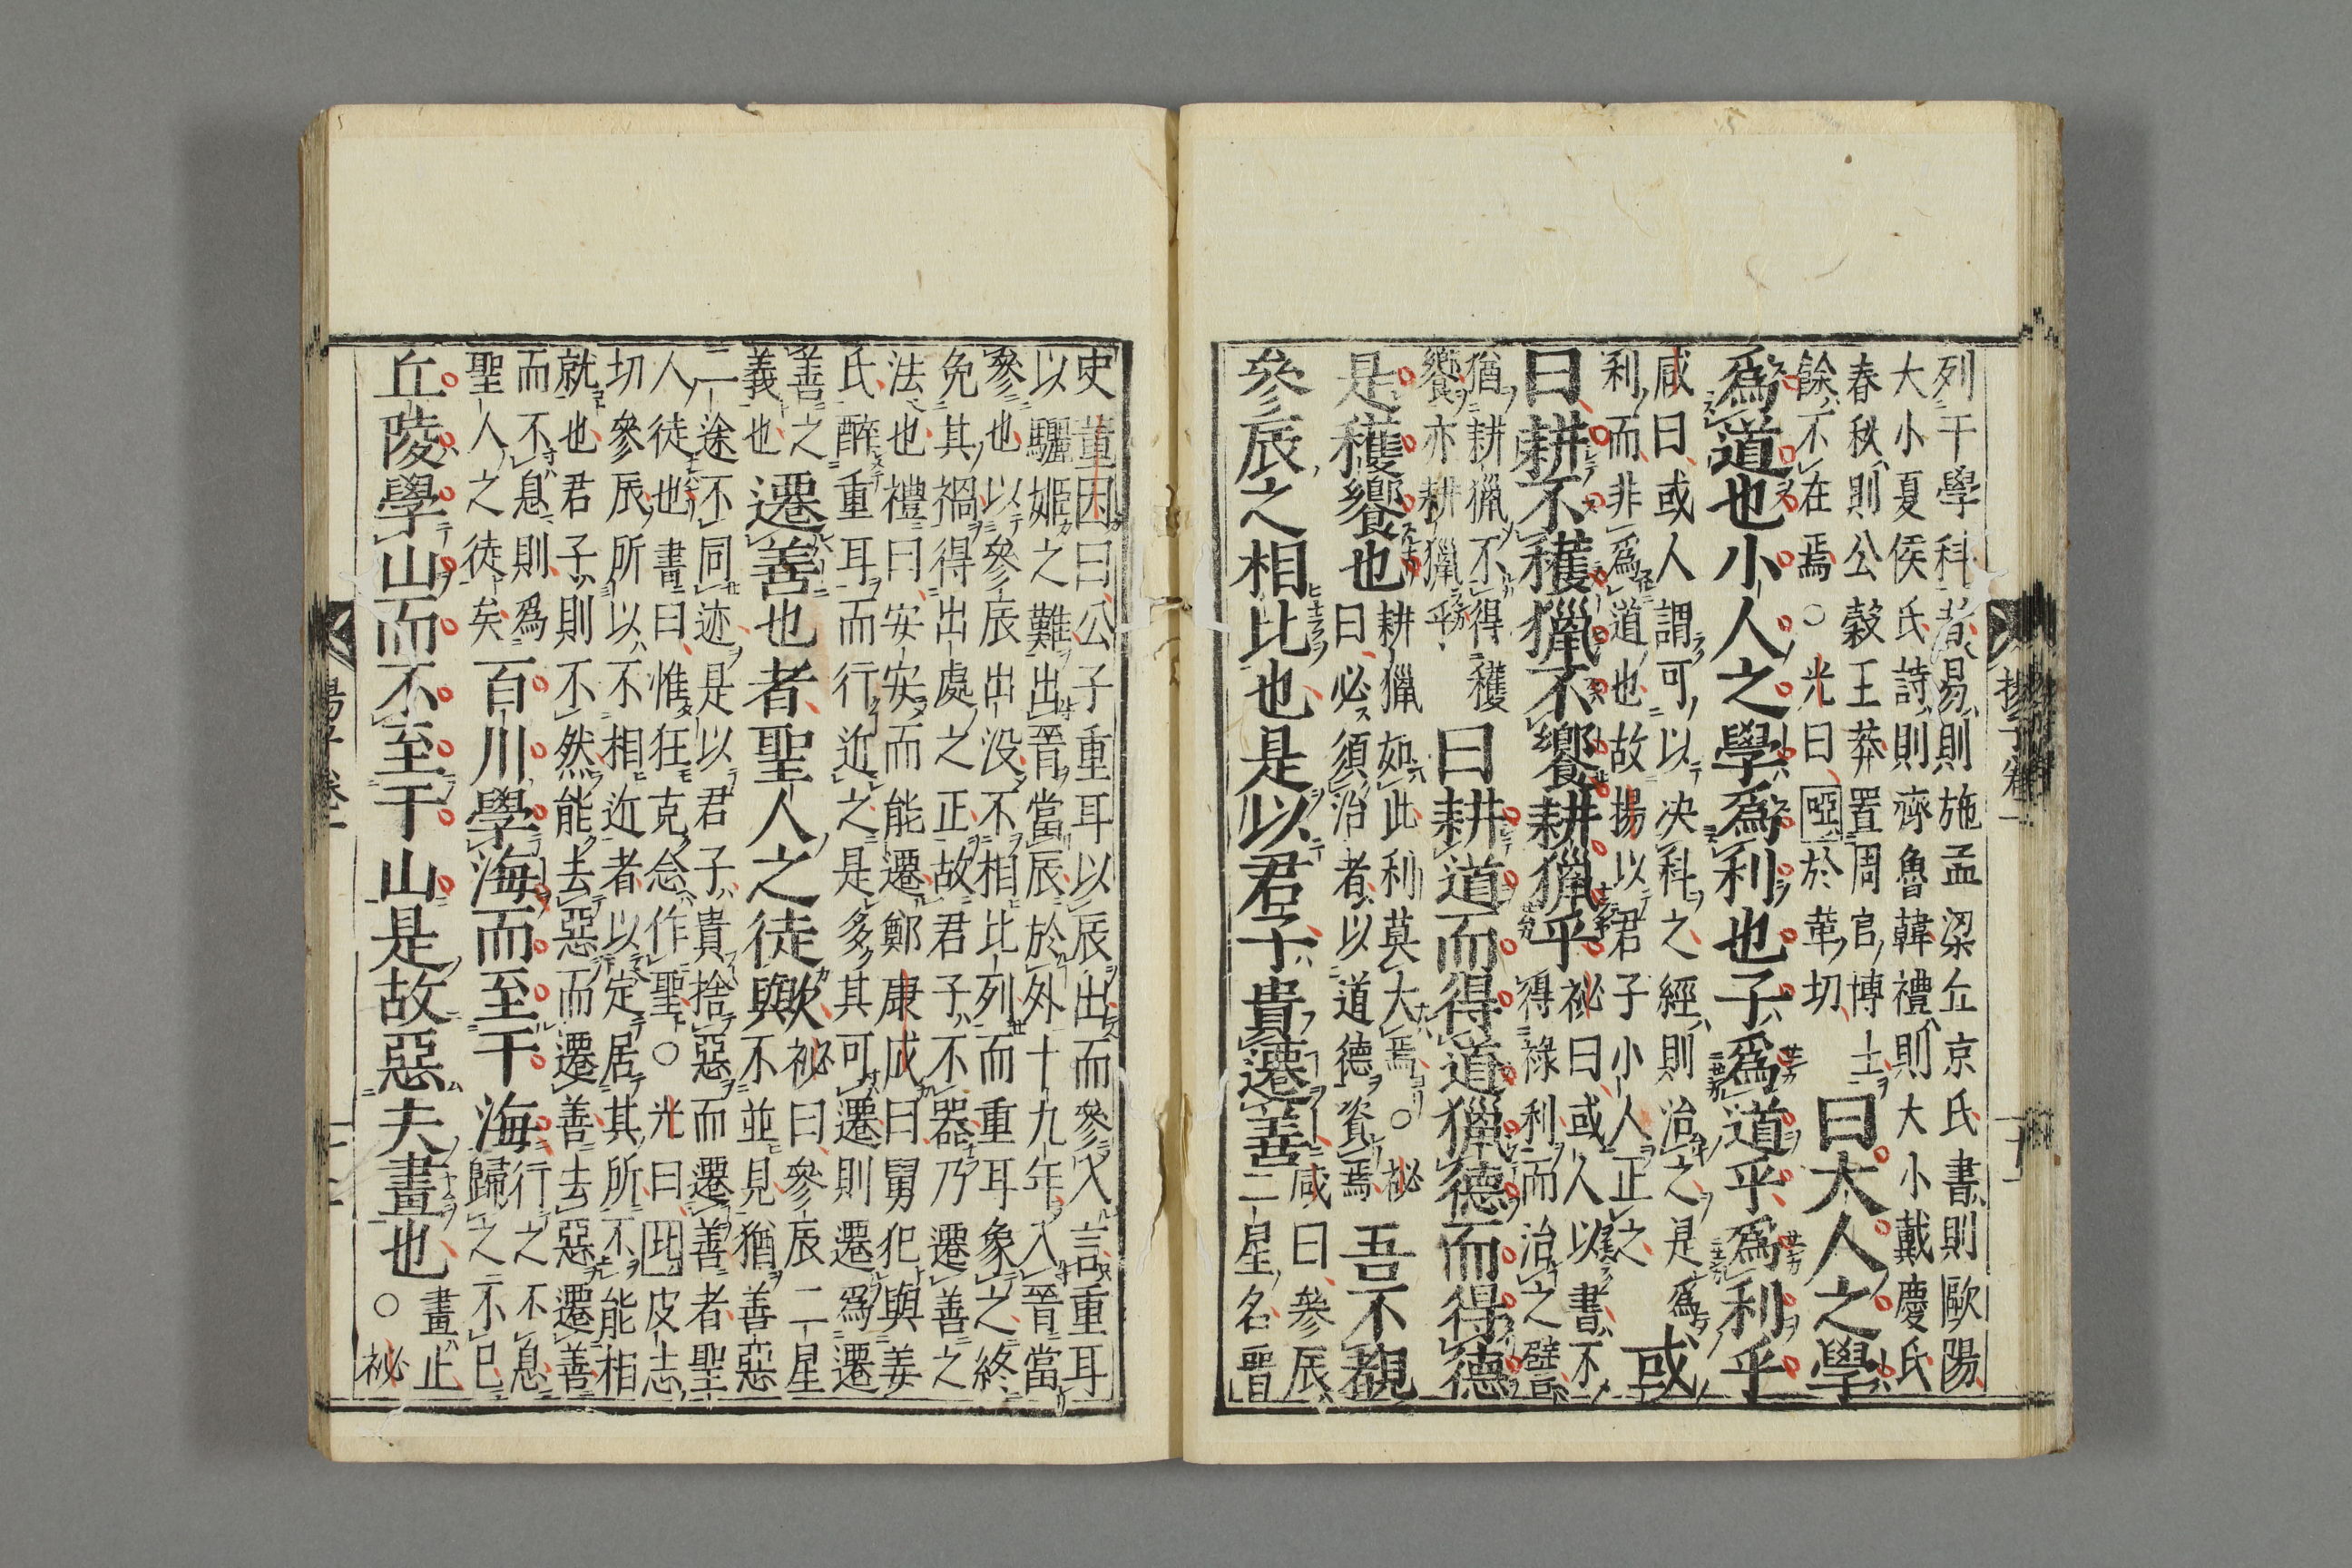 列于學科者易則施孟梁丘京氏書則歐陽
大小夏侯氏詩則齊魯韓禮則大小戴慶氏
春秋則公穀王莽置周官博士
餘不在焉○光曰啞於革切
曰大人之學
爲道也小人之學爲利也子爲道乎爲利乎
咸曰或人謂可以决科之經則治之是爲
利而非爲道也故揚以君子小人正之
或
曰耕不穫獵不饗耕獵乎
祕曰或人以書不
得祿利而治之譬
猶耕獵不得穫
饗亦耕獵乎
曰耕道而得道獵德而得德
是穫饗也
耕獵如此利莫大焉○祕
曰必須治者以道德資焉
吾不覩
參辰之相比也是以君子貴遷善
咸曰參辰
二星名晉
史董因曰公子重耳以辰出而參入言重耳
以驪姬之難出晉當辰於外十九年入晉當
參也以參辰出没不相比列而重耳象之終
免其禍得出處之正故君子不器乃遷善之
法也禮曰安安而能遷鄭康成曰舅犯與姜
氏醉重耳而行近之是多其可遷則遷爲遷
善之
義也
遷善也者聖人之徒歟
祕曰參辰二星
與不並見猶善惡
二途不同迹是以君子貴捨惡而遷善者聖
人徒也書曰惟狂克念作聖○光曰毗皮志
切參辰所以不相近者以定居其所不能相
就也君子則不然能去惡而遷善去惡遷善
而不息則爲
聖人之徒矣
百川學海而至于海
行之不息
歸之不已
丘陵學山而不至于山是故惡夫畫也
畫止
○祕
揚子卷一
十一